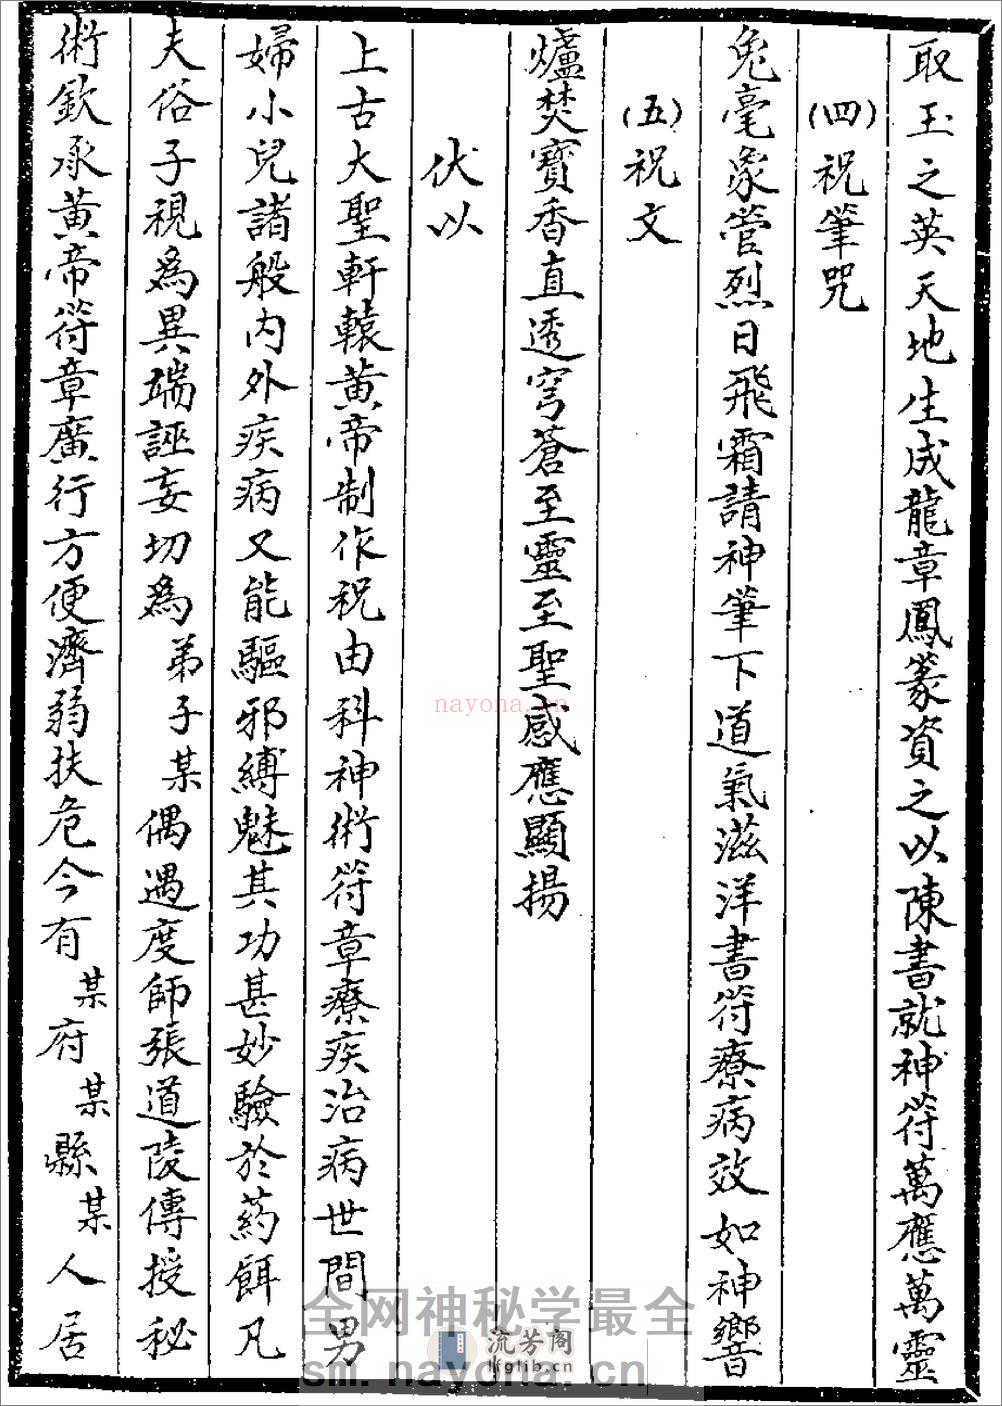 取玉之英天地生成龍章鳳篆資之以陳書就神符萬應萬靈
(四)祝筆咒
兔毫象管烈日飛霜請神筆下道氣滋洋書符療病效如神響
(五)祝文
爐焚寶香直透穹蒼至靈至聖感應顯揚
伏以
上古大聖軒轅黄帝制作祝由科神術符章療疾治病世間男
婦小兒諸般内外疾病又能驅邪縛魅其功甚妙驗於药餌凡
夫俗子視為異端誣妄切為弟子某偶遇度師張道陵傳授秘
術欽承黄帝符章廣行方便濟弱扶危今有某府某縣某人居
nayona.cn
全网神秘学最全
流芳阁
lfglib.cn
sm.nayona.cn